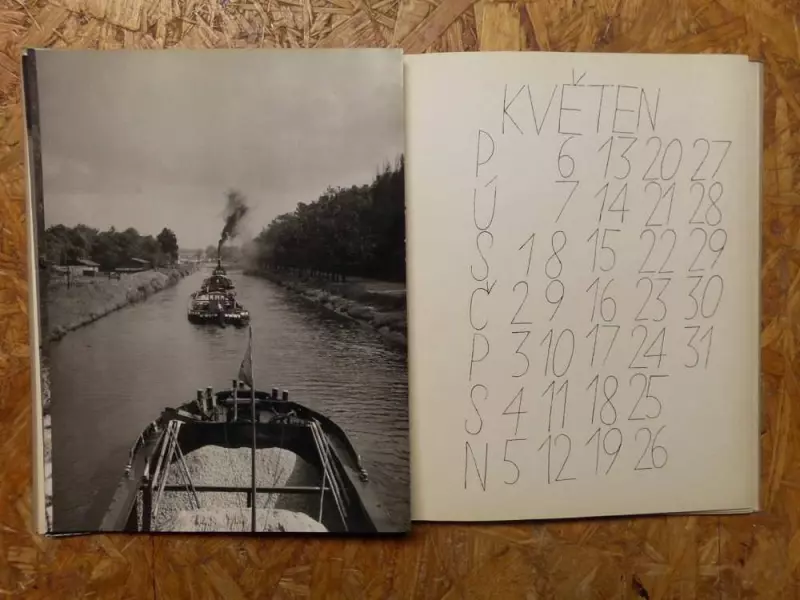 KVĚTEN
P 6 13 20 27
Ú 7 14 21 28
S 1 8 15 22 29
Č 2 9 16 23 30
P 3 10 17 24 31
S 4 11 18 25
N 5 12 19 26